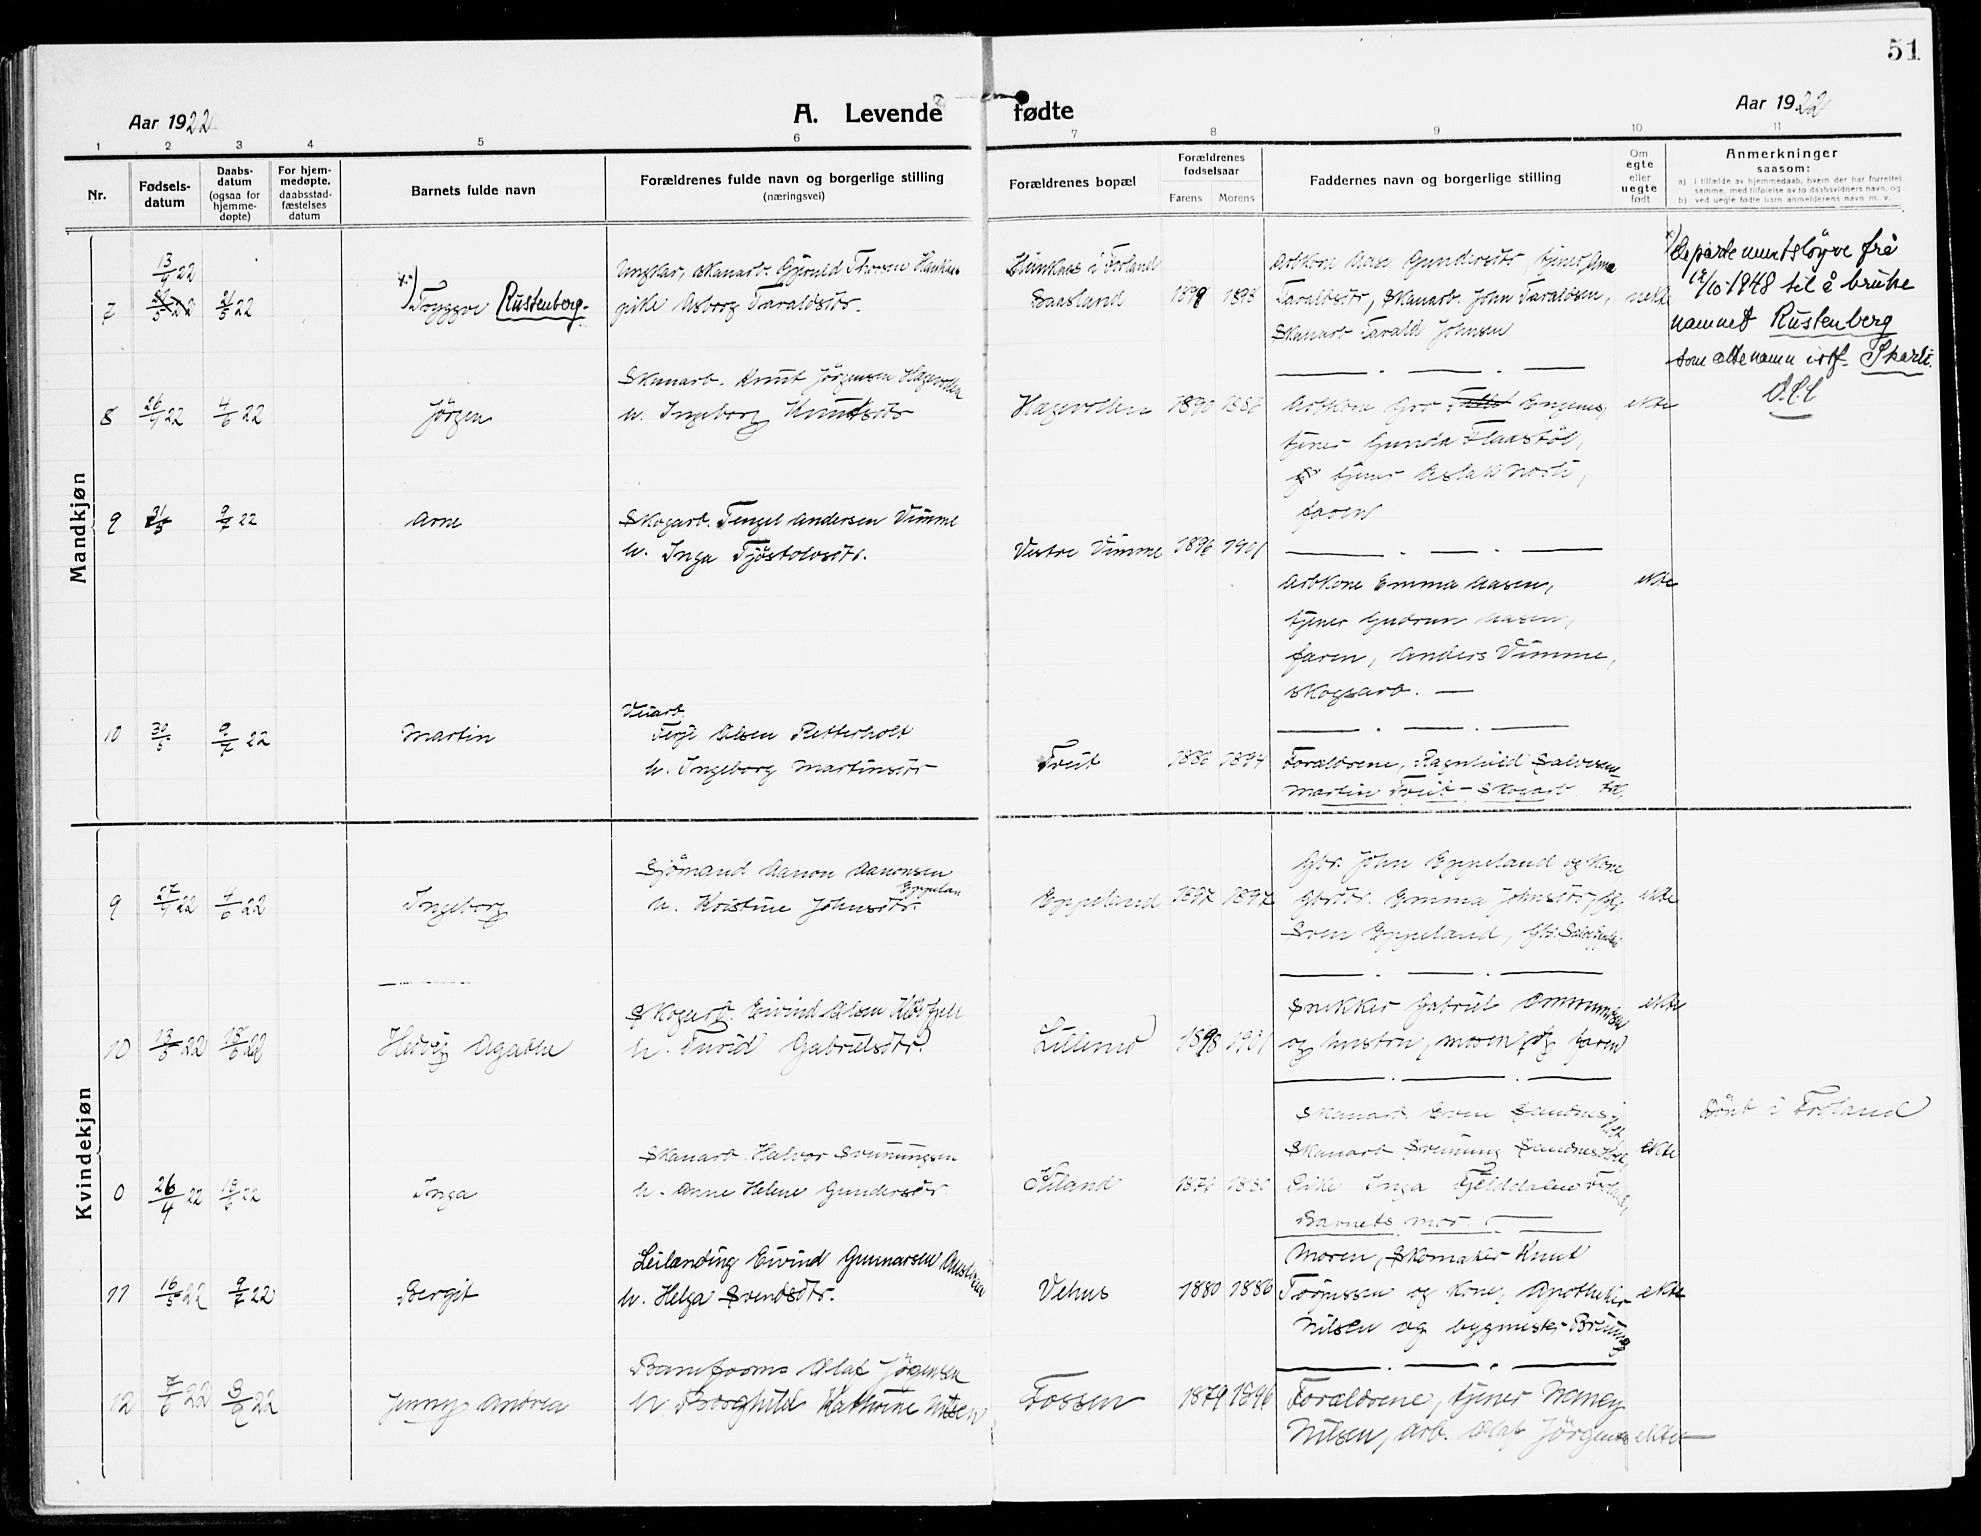 51
Aar 1922
A. Levende fødte
Aar 1922
1 2 3 4 5 6 7 8 9 10 11
Nr.
Fødsels-
datum
Daabs-
datum
(ogsaa for
hjemme-
døpte)
For hjem-
medøpte,
daabsstad-
fæstelses
datum
Barnets fulde navn
Forældrenes fulde navn og borgerlige stilling
(næringsvei)
Forældrenes bopæl
Forældrenes
fødselsaar
Farens Morens
Faddernes navn og borgerlige stilling
Om
egte
eller
uegte
født
Anmerkninger
saasom:
a) i tilfælde av hjemmedaab, hvem der har forrettet
samme, med tilføielse av to daabsvidners navn, og
b) ved uegte fødte barn anmelderens navn m. v.
Mandkjøn
7
13/4 22
21/5 22
x) Tryggve Rustenberg
Ungkar, skauarb. Gjeruld
pike Asborg Taraldsdtr.
i Froland
1898
Arbkone Aase Gundersdtr, tjener Anna
Taraldsdtr, Skauarb. John Taraldsen,
Skauarb Tarald Johnsen
x) Departementsløyve frå
12/10 1948 til å bruke
namnet Rustenberg
som ættenamn istf.
8
26/4 22
4/6 22
Jörgen
Skauarb. Knut Jörgensen Hagevollen
h. Ingeborg Knutsdtr
Hagevollen
1890 1886
Arbkone Gro
tjener Gunda Flaastöl,
tjener Aslak
faren
ekte
9
31/5
9/7 22
Arne
Skogarb. Tengel Andersen Vimme
h. Inga Tjöstolvsdtr.
Vestre Vimme
1896 1901
Arbkone Emma Aasen,
tjener Gudrun Aasen,
faren, Anders Vimme,
skogsarb.
ekte
10
30/5
9/7 22
Martin
Veiarb.
Terje Olsen Retterholt
h. Ingeborg Martinsdtr
Tveit
1886 1894
Foraldrene, Ragnhild Salvesen
Martin Tveit - Skogarb
Kvindekjøn
9
27/4 22
4/6 22
Ingeborg
Sjömand Aanon Aanonsen
Eppeland
h. Kristine Johnsdtr.
Eppeland
1897 1897
Gbr. John Eppeland og kone
Gbrdtr. Emma Johnsdtr,
Sven Eppeland,
ekte
10
13/5 22
22
Hedvig Agathe
Skogarb. Eivind Olsen
h. Turid Gabrielsdtr.
1898 1901
Snekker Gabriel Ommundsen
og hustru, moren og faren
ekte
0
26/4 22
22
Inga
Skauarb. Halvor Sveinungsen
h. Anne Helene Gundersdtr.
1880
Skauarb. Sven Sandnes
Skauarb Sveinung Sandnes
Pike Inga Fjelddalen
Barnets mor.
ekte
Döpt i Froland
11
16/5 22
9/7 22
Bergit
Leilanding Eivind Gunnarsen
h. Helga Svendsdtr.
Vehus
1880 1886
Moren, Skomaker Knut
Torjussen og kone, Apotheker
Nilsen og bygmester
ekte
12
22
22
Jenny Andrea
Baneform. Olaf Jörgensen
h. Borghild Kathrine Nilsen
Fossen
1879 1896
Foraldrene, tjener Nancy
Nilsen, arb. Olaf Jörgensen
ekte